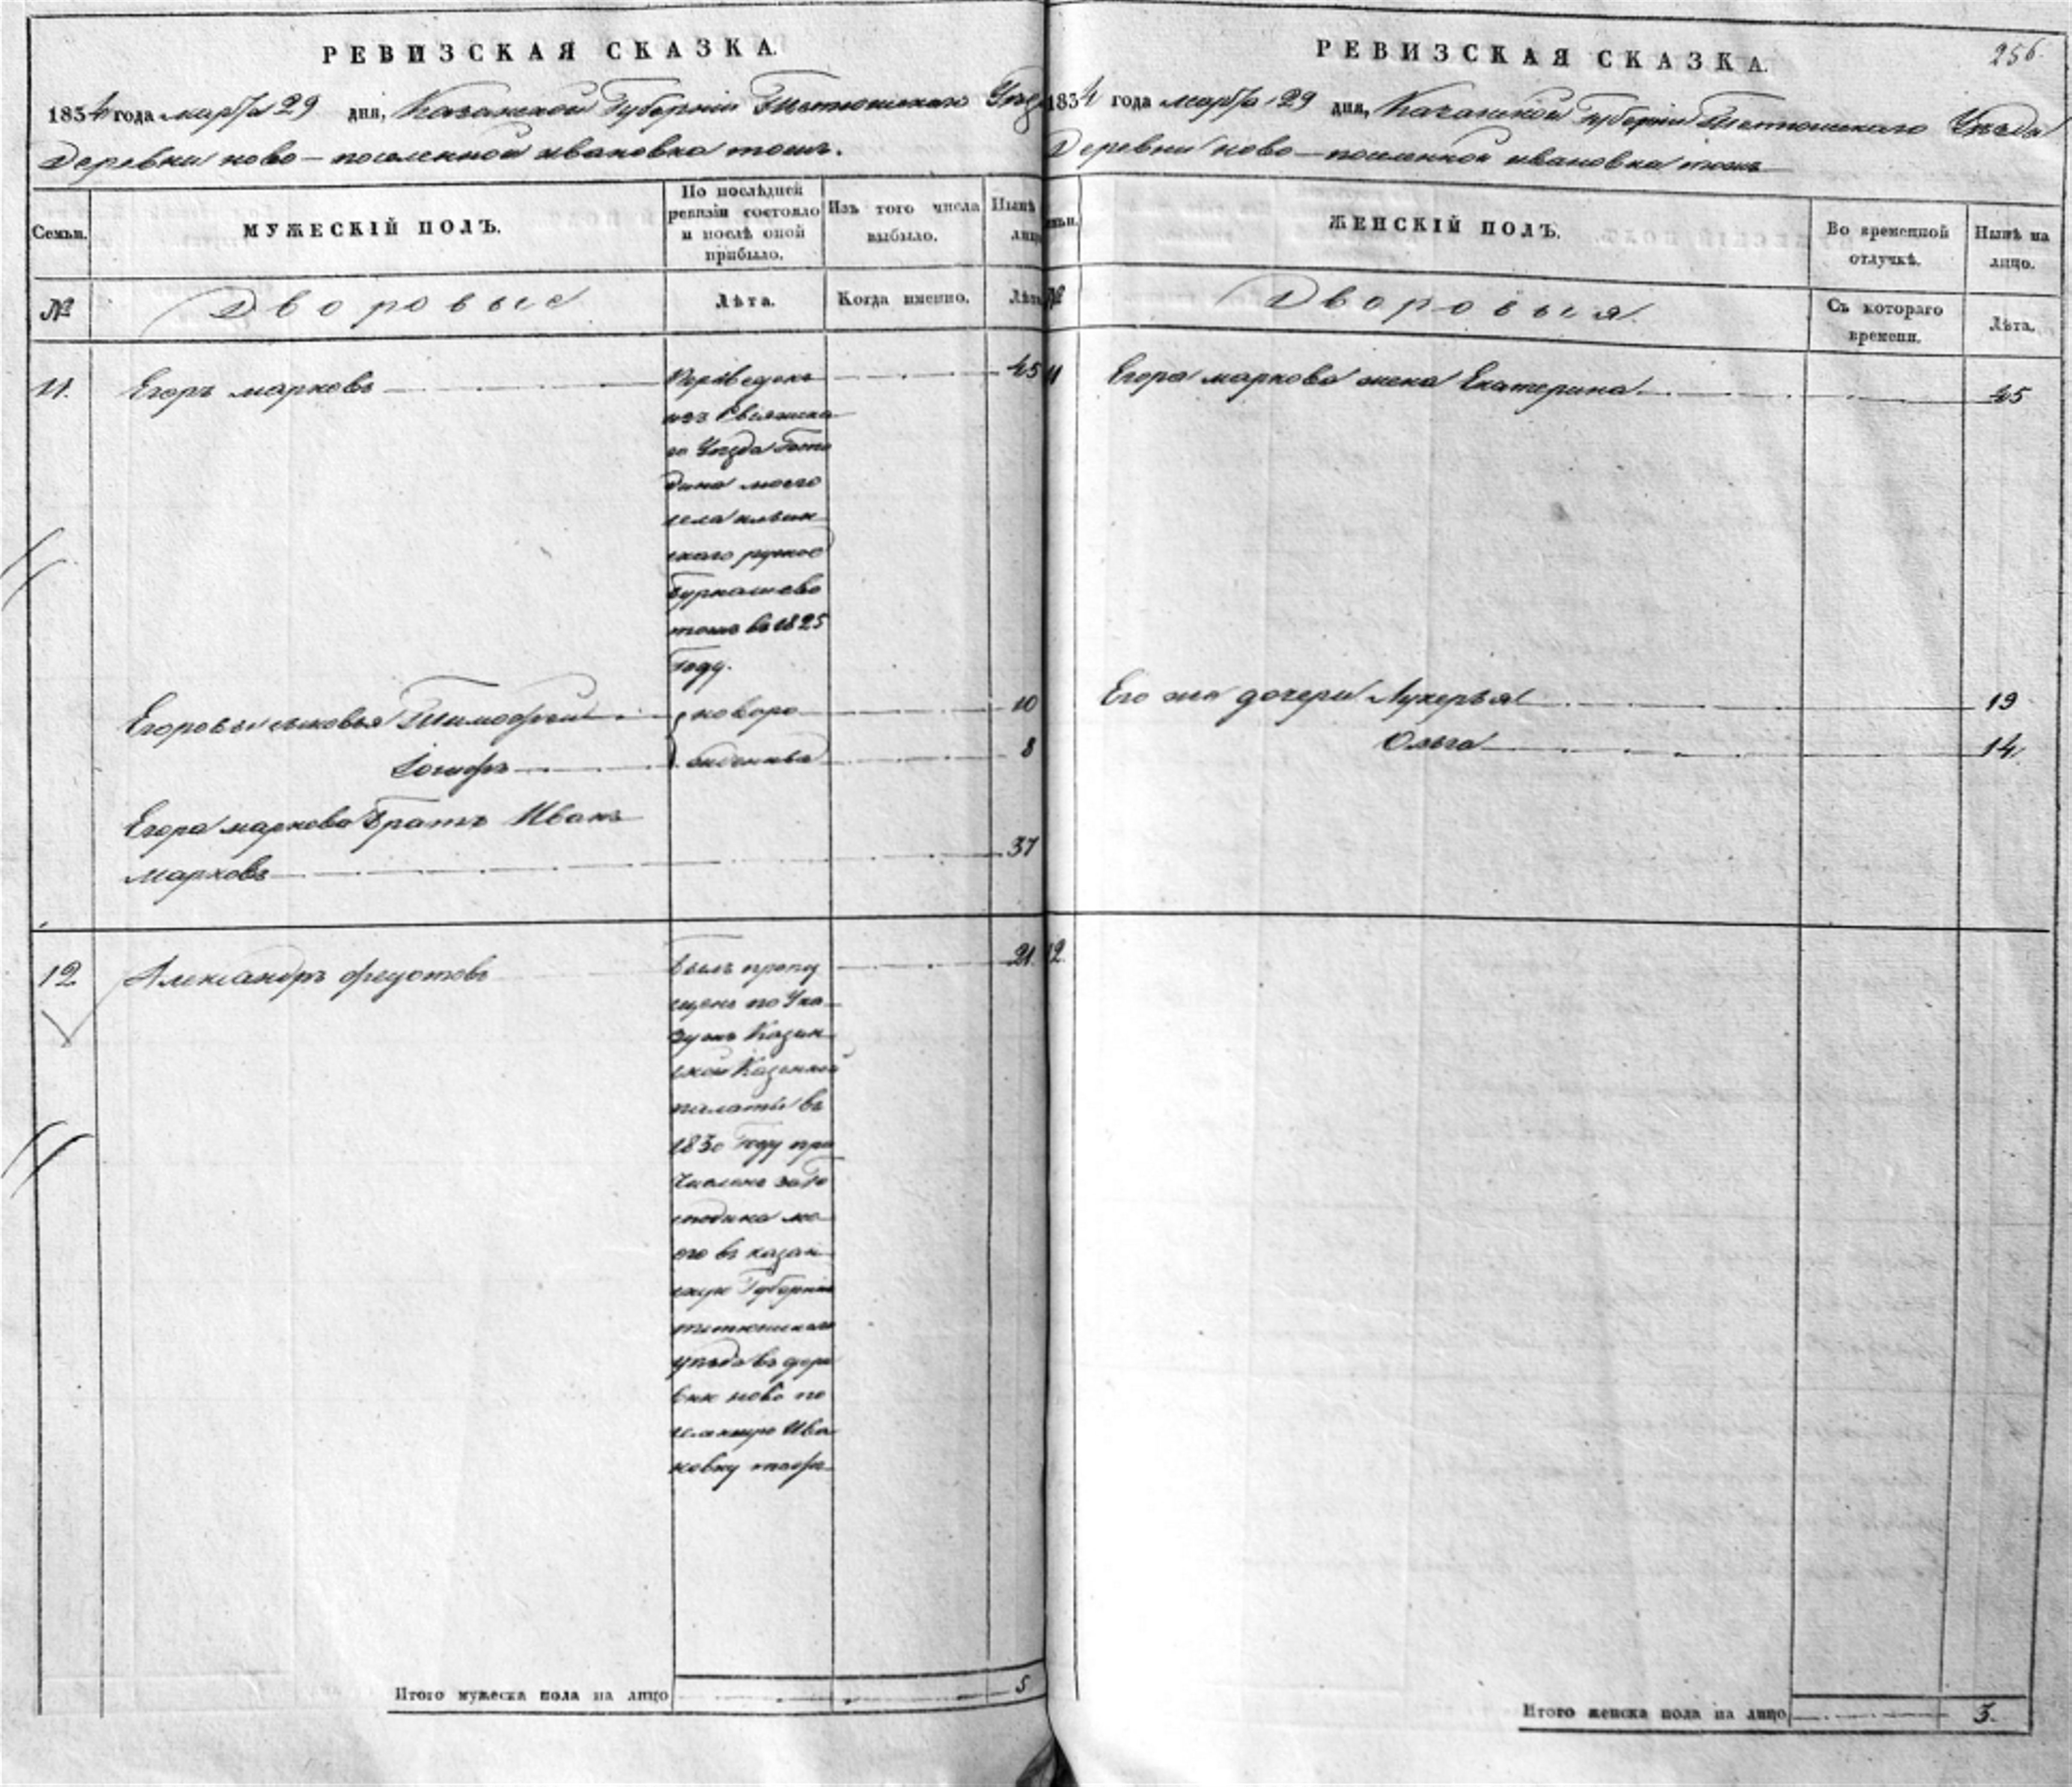 РЕВИЗСКАЯ СКАЗКА.
1834 года марта 29 дня, Казанской Губернии Тетюшскаго Уезда
Деревни ново-поселенной ивановка тожъ.
Семьи.
МУЖЕСКІЙ ПОЛЪ.
По послѣдней ревизіи состояло и послѣ оной прибыло.
Изъ того числа выбыло.
Нынѣ на лицо
№
Дворовые
Лѣта.
Когда именно.
Лѣта
11.
Егоръ марковъ
Переведенъ
45
изъ Свіяжска
го Уезда Госпо
дина моего
села ильин
скаго руское
Бурнашево
тожъ въ 1825
Году.
Егоровы сыновья Тимофей
новоро
10
Іосифъ
жденныя
8
Егора маркова Братъ Иванъ
Марковъ
37
12
Александръ феустовъ
Былъ пропу
21.
щенъ по Ука
зу онъ Казан
ской Казенной
палаты въ
1830 Году при
численъ за Го
сподина мо
его въ казан
скую Губернию
тетюшскаго
уезда въ дере
вню ново по
селенную Ива
новку тожъ
Итого мужеска пола на лицо
5
256.
РЕВИЗСКАЯ СКАЗКА.
1834 года марта 29 дня, Казанской Губернии Тетюшскаго Уезда
Деревни ново-поселенной ивановка тожъ
Семьи.
ЖЕНСКІЙ ПОЛЪ.
Во временной отлучкѣ.
Нынѣ на лицо.
№
Дворовыя
Съ котораго времени.
Лѣта.
11
Егора маркова жена Екатерина
45
Его же дочери Лукерья
19
Ольга
14.
12.
Итого женска пола на лицо
3.